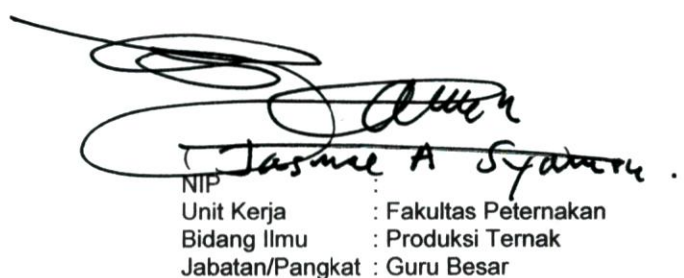 A
NIP :
Unit Kerja : Fakultas Peternakan
Bidang Ilmu : Produksi Ternak
Jabatan/Pangkat : Guru Besar